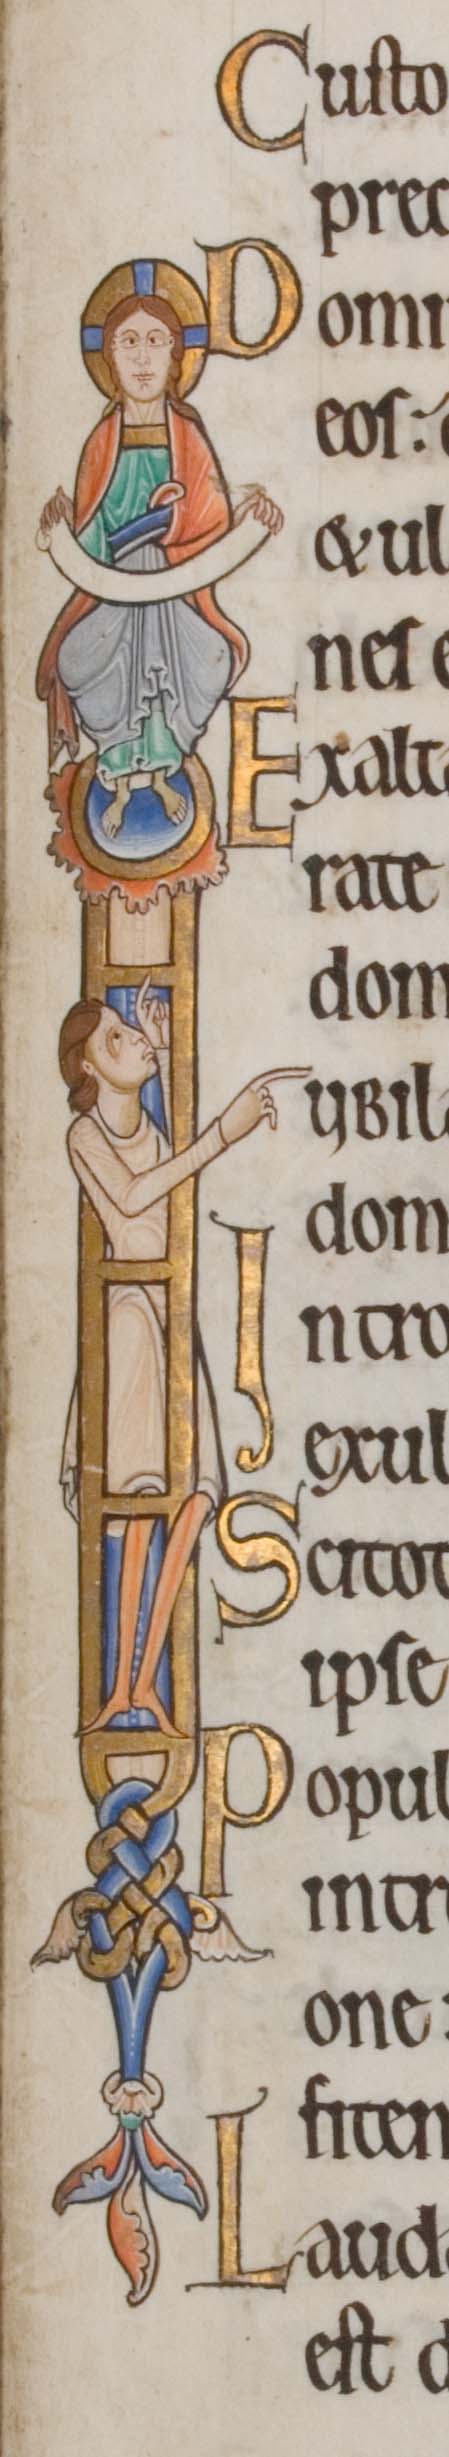 Custo
prec
Domi
eos: 
& ul
nes e
Exalta
rate
dom
IUBIL
dom
Intro
exul
Scitot
ipse
Popul
intr
one:
fiten
Lauda
est d